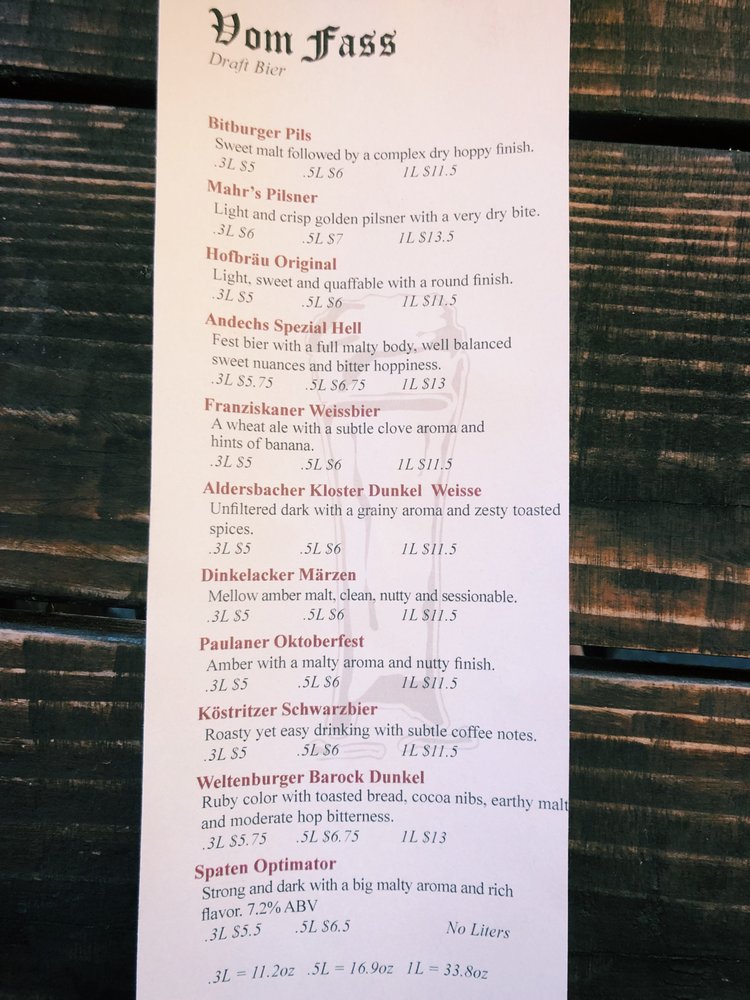 Vom Fass
Draft Bier
Bitburger Pils
Sweet malt followed by a complex dry hoppy finish.
.3L $5 .5L $6 1L $11.5
Mahr's Pilsner
Light and crisp golden pilsner with a very dry bite.
.3L $6 .5L $7 1L $13.5
Hofbräu Original
Light, sweet and quaffable with a round finish.
.3L $5 .5L $6 1L $11.5
Andechs Spezial Hell
Fest bier with a full malty body, well balanced
sweet nuances and bitter hoppiness.
.3L $5.75 .5L $6.75 1L $13
Franziskaner Weissbier
A wheat ale with a subtle clove aroma and
hints of banana.
.3L $5 .5L $6 1L $11.5
Aldersbacher Kloster Dunkel Weisse
Unfiltered dark with a grainy aroma and zesty toasted
spices.
.3L $5 .5L $6 1L $11.5
Dinkelacker Märzen
Mellow amber malt, clean, nutty and sessionable.
.3L $5 .5L $6 1L $11.5
Paulaner Oktoberfest
Amber with a malty aroma and nutty finish.
.3L $5 .5L $6 1L $11.5
Köstritzer Schwarzbier
Roasty yet easy drinking with subtle coffee notes.
.3L $5 .5L $6 1L $11.5
Weltenburger Barock Dunkel
Ruby color with toasted bread, cocoa nibs, earthy malt
and moderate hop bitterness.
.3L $5.75 .5L $6.75 1L $13
Spaten Optimator
Strong and dark with a big malty aroma and rich
flavor. 7.2% ABV
.3L $5.5 .5L $6.5 No Liters
.3L = 11.2oz .5L = 16.9oz 1L = 33.8oz